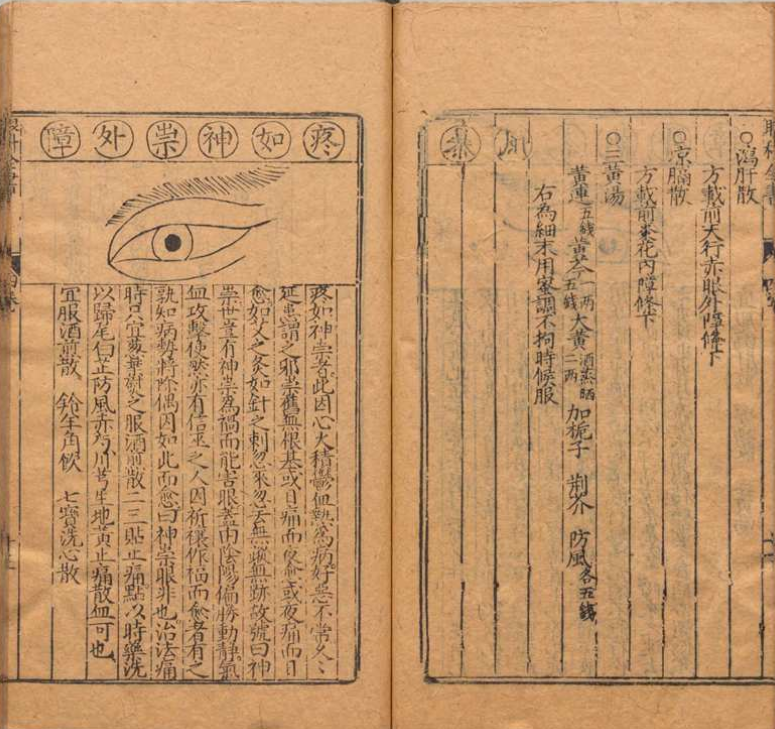 ○瀉肝散
方載前天行赤眼外障條下
○涼膈散
方載前棗花內障條下
○三黃湯
黃連五錢 黃芩一兩五錢 大黃酒蒸晒二兩 加梔子 荊芥 防風各五錢
右為細末用蜜調不拘時候服
疼如神祟外障
疼如神祟者此因心火積鬱血熱為病好患不常久久
延患謂之邪祟舊無根基或日痛而夜愈或夜痛而日
愈如艾之灸如針之刺忽來忽去無蹤無跡故號曰神
祟世豈有神祟為禍而能害眼蓋由陰陽偏勝動靜氣
血攻擊使然亦有信巫之人因祈禳作福而愈者有之
孰知病勢將除偶因如此而愈曰神祟眼非也治法痛
時只宜蓽對之服酒煎散二三貼止痛點以時藥洗
以歸尾白芷防風赤芍川芎生地黃止痛散血可也
宜服酒煎散 羚羊角飲 七寶洗心散